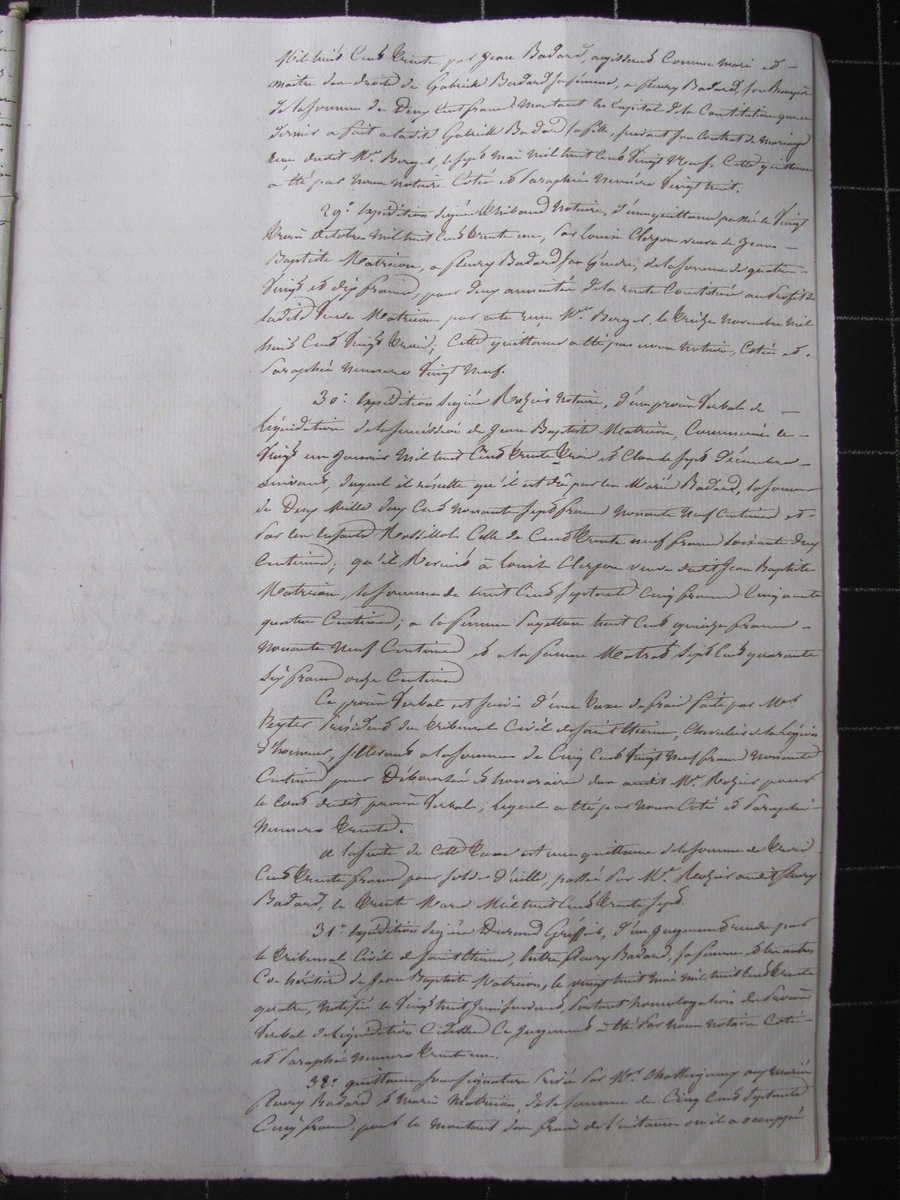 Mil huit Cent trente, par Jean Badard, agissant Comme mari et —
maître des droits de Gabriel Badard sa femme, a fleury Badard, son Beaupère
de la somme de Deux Cent francs montant en Capital de la Constitution que ce
dernier a fait a ladite Gabriel Badard sa fille, suivant son Contrat de mariage
reçu dudit Me. Berger, le sept mai mil huit Cent Vingt Neuf. Cette quittance
a été par nous notaire Cotée et Paraphée numéro Vingt huit.
29° Expédition signée Thibaud Notaire, d'une quittance passée le Vingt
trois octobre mil huit Cent trente un, Par Louise Clerjon veuve de Jean —
Baptiste Matricon, a fleury Badard, son Gendre, de la somme de quatre —
Vingt et dix francs, pour deux annuités de la rente Constituée au Profit de
ladite Veuve Matricon par acte reçu Me. Berger, le treize novembre mil
huit Cent Vingt trois; Cette quittance a été par nous notaire, Cotée et —
Paraphée numéro Vingt Neuf.
30° Expédition signée Rozier Notaire, d'un procès Verbal de —
Liquidation de la succession de Jean Baptiste Matricon, Commencé le —
Vingt un Janvier mil huit Cent trente trois et Clos le sept Décembre —
suivant, duquel il résulte qu'il est dû par les Mariés Badard, la somme
de Deux Mille deux Cent nonante sept francs nonante Neuf Centimes et —
Par les Enfants Massillol Celle de Cent trente neuf francs soixante deux
Centimes; qu'il Revient à Louise Clerjon veuve dudit Jean Baptiste
Matricon, la somme de huit Cent septante Cinq francs Cinquante
quatre Centimes; a la femme Payettar huit Cent quinze francs —
nonante Neuf Centimes et a la femme Matrat sept Cent quarante
six francs onze Centimes
Ce procès Verbal est suivi d'une taxe de frais faite par Mr.
Teyter Président du tribunal Civil de Saint Etienne, Chevalier de la Légion
d'honneur, s'élevant a la somme de Cinq Cent Vingt Neuf francs Nonante
Centimes pour Déboursés et honoraires dus audit Me. Rozier pour
le Cout dudit procès Verbal; lequel a été par nous Coté et Paraphé
Numéro trente.
A la suite de Cette taxe est une quittance de la somme de trois
Cent trente francs pour solde d'icelle, passée Par Me. Rozier audit fleury
Badard, le trente Mars Mil huit Cent trente sept.
31° Expédition signée Durand Greffier, d'un jugement rendu par
le tribunal Civil de Saint Etienne, Entre fleury Badard, sa femme et les autres
Co-héritiers de Jean Baptiste Matricon, le vingt huit mai mil huit Cent trente
quatre, notifié le Vingt huit Juin suivant, Portant homologation du Procès
Verbal de Liquidation Cidessus. Ce Jugement a été Par nous notaire Coté —
et Paraphé numéro trente un.
32° quittance sous signature Privée Par Me. aux mariés
fleury Badard et Marie Matricon, de la somme de Cinq Cent Septante
Cinq francs, pour le montant des frais de l'instance où il a occupé